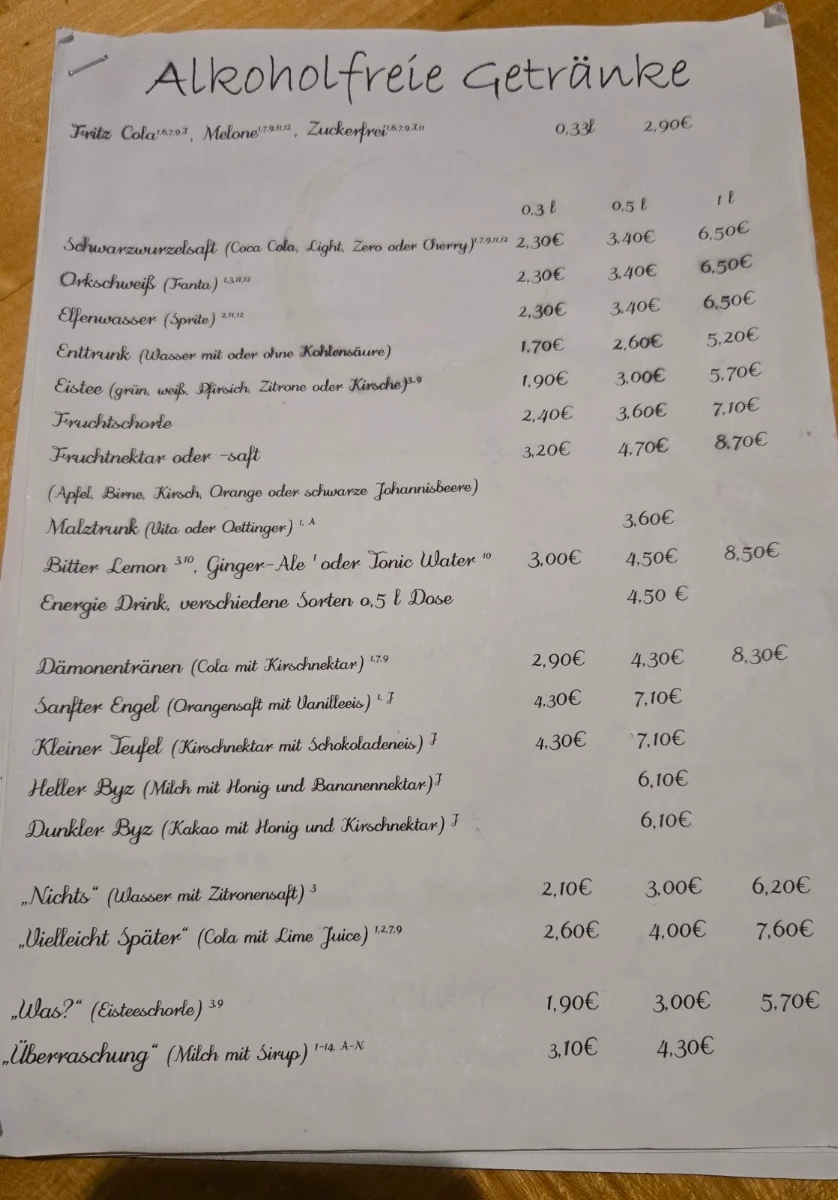 Alkoholfreie Getränke
Fritz Cola 1,6,7,9,J, Melone 1,7,9,11,12, Zuckerfrei 1,6,7,9,J,11 0,33l 2,90€
0,3 l 0,5 l 1 l
Schwarzwurzelsaft (Coca Cola, Light, Zero oder Cherry) 1,7,9,11,12 2,30€ 3,40€ 6,50€
Orkschweiß (Fanta) 1,3,11,12 2,30€ 3,40€ 6,50€
Elfenwasser (Sprite) 2,11,12 2,30€ 3,40€ 6,50€
Enttrunk (Wasser mit oder ohne Kohlensäure) 1,70€ 2,60€ 5,20€
Eistee (grün, weiß, Pfirsich, Zitrone oder Kirsche) 3,9 1,90€ 3,00€ 5,70€
Fruchtschorle 2,40€ 3,60€ 7,10€
Fruchtnektar oder -saft 3,20€ 4,70€ 8,70€
(Apfel, Birne, Kirsch, Orange oder schwarze Johannisbeere)
Malztrunk (Vita oder Oettinger) 1, A 3,60€
Bitter Lemon 3,10, Ginger-Ale 1 oder Tonic Water 10 3,00€ 4,50€ 8,50€
Energie Drink, verschiedene Sorten 0,5 l Dose 4,50 €
Dämonentränen (Cola mit Kirschnektar) 1,7,9 2,90€ 4,30€ 8,30€
Sanfter Engel (Orangensaft mit Vanilleeis) 1, J 4,30€ 7,10€
Kleiner Teufel (Kirschnektar mit Schokoladeneis) J 4,30€ 7,10€
Heller Byz (Milch mit Honig und Bananennektar) J 6,10€
Dunkler Byz (Kakao mit Honig und Kirschnektar) J 6,10€
„Nichts“ (Wasser mit Zitronensaft) 3 2,10€ 3,00€ 6,20€
„Vielleicht Später“ (Cola mit Lime Juice) 1,2,7,9 2,60€ 4,00€ 7,60€
„Was?“ (Eisteeschorle) 3,9 1,90€ 3,00€ 5,70€
„Überraschung“ (Milch mit Sirup) 1-14, A-N 3,10€ 4,30€